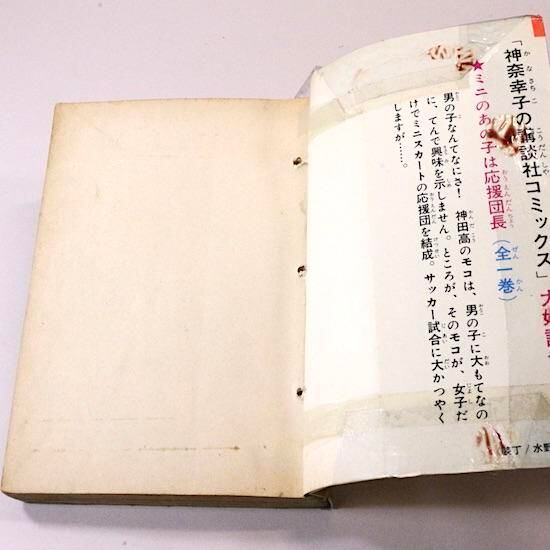 「神奈幸子の講談社コミックス」大好評
★ミニのあの子は応援団長(全一巻)
男の子なんてなにさ! 神田高のモコは、男の子に大もてなの
に、てんで興味を示しません。ところが、そのモコが、女子だ
けでミニスカートの応援団を結成。サッカー試合に大かつやく
しますが……。
装丁/水野